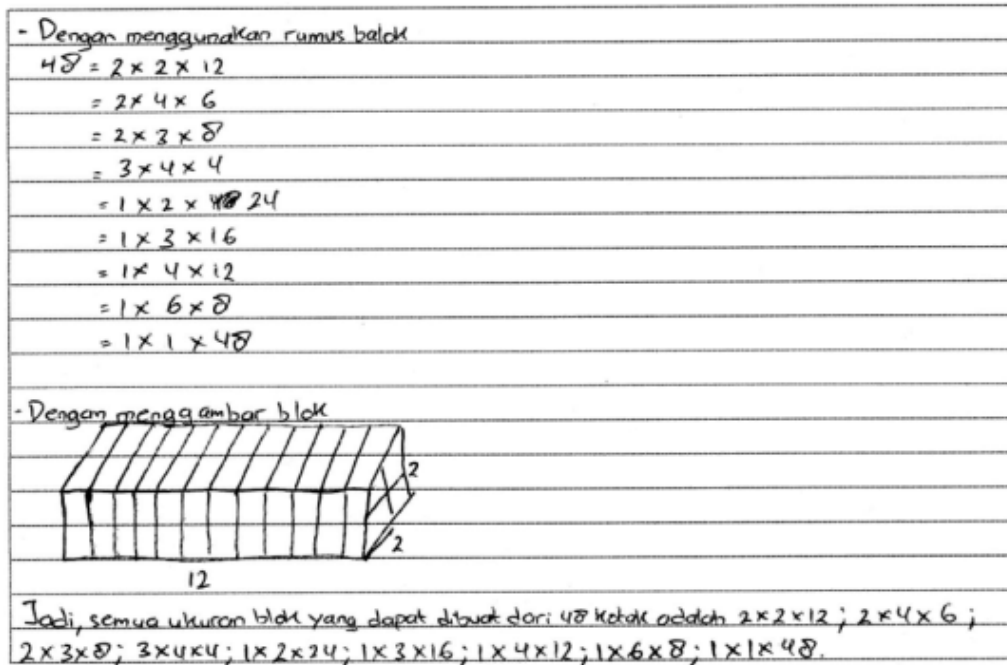 - Dengan menggunakan rumus balok
48 = 2 × 2 × 12
= 2 × 4 × 6
= 2 × 3 × 8
= 3 × 4 × 4
= 1 × 2 × 24
= 1 × 3 × 16
= 1 × 4 × 12
= 1 × 6 × 8
= 1 × 1 × 48
- Dengan menggambar blok
2
2
12
Jadi, semua ukuran blok yang dapat dibuat dari 48 kotak adalah 2×2×12 ; 2×4×6 ;
2×3×8 ; 3×4×4 ; 1×2×24 ; 1×3×16 ; 1×4×12 ; 1×6×8 ; 1×1×48.